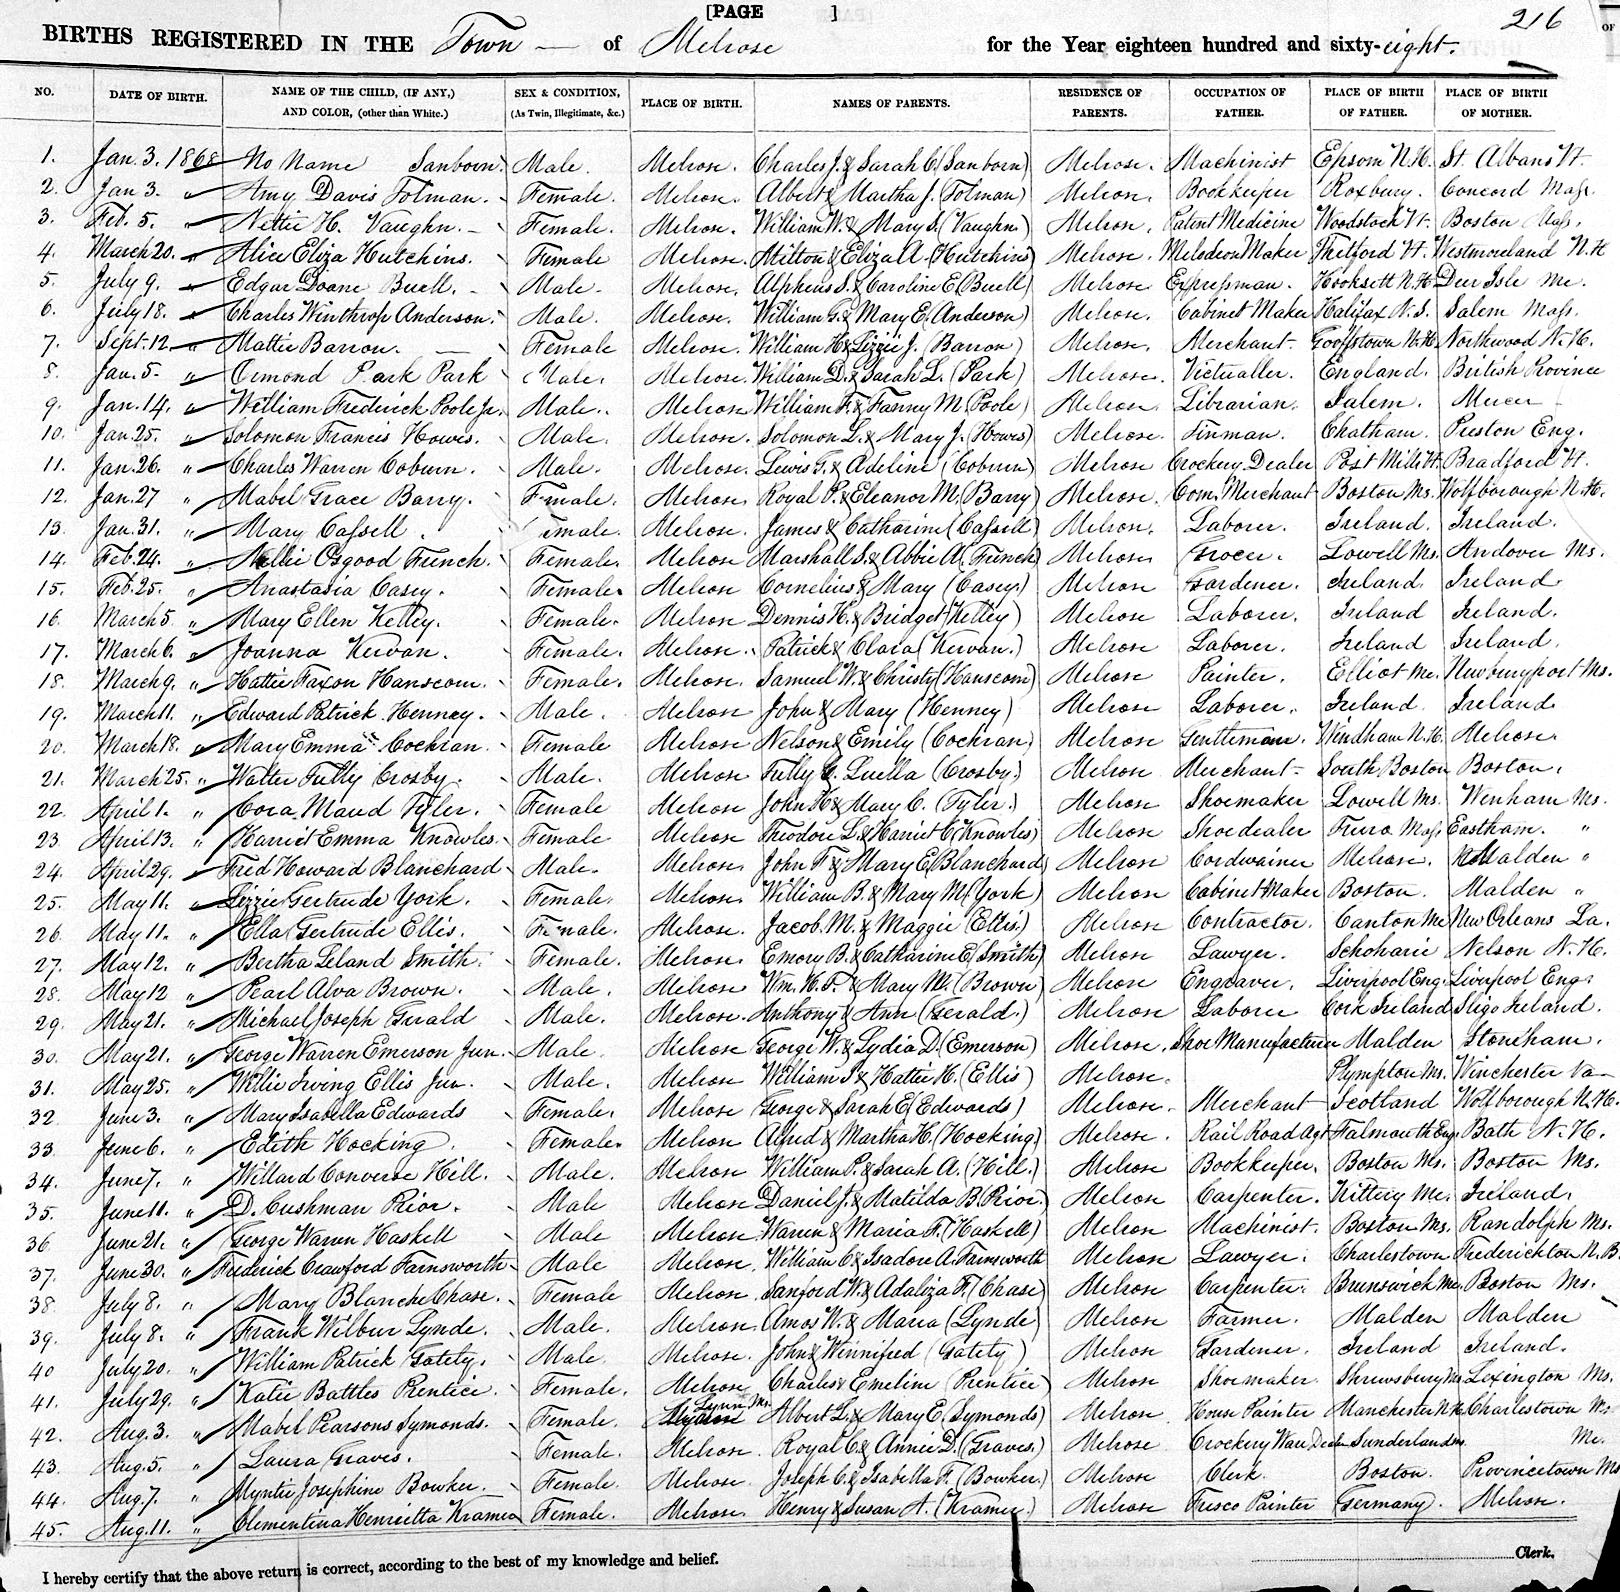 [PAGE ]
216
BIRTHS REGISTERED IN THE Town of Melrose for the Year eighteen hundred and sixty-eight.
NO. DATE OF BIRTH. NAME OF THE CHILD, (IF ANY,) AND COLOR, (other than White.) SEX & CONDITION, (As Twin, Illegitimate, &c.) PLACE OF BIRTH. NAMES OF PARENTS. RESIDENCE OF PARENTS. OCCUPATION OF FATHER. PLACE OF BIRTH OF FATHER. PLACE OF BIRTH OF MOTHER.
1. Jan. 3. 1868 No Name Sanborn. Male. Melrose. Charles J. & Sarah C. (Sanborn) Melrose. Machinist Epsom N.H. St. Albans Vt.
2. Jan 3. " Amy Davis Tolman. Female. Melrose. Albert & Martha J. (Tolman) Melrose. Bookkeeper Roxbury. Concord Mass.
3. Feb. 5. " Nettie H. Vaughn. Female. Melrose. William W. & Mary S. (Vaughn.) Melrose. Patent Medicine Woodstock Vt. Boston Mass.
4. March 20. " Alice Eliza Hutchins. Female Melrose. Milton & Eliza A. (Hutchins) Melrose. Melodeon Maker Thetford Vt. Westmoreland N.H
5. July 9. " Edgar Doane Buell. Male. Melrose. Alpheus S. & Caroline E. (Buell) Melrose. Expressman. Hooksett N.H. Deer Isle Me.
6. July 18. " Charles Winthrop Anderson. Male. Melrose. William G. & Mary E. (Anderson) Melrose. Cabinet Maker Halifax N.S. Salem Mass.
7. Sept. 12. " Mattie Barron. Female Melrose. William H. & Lizzie J. (Barron) Melrose. Merchant. Goffstown N.H. Northwood N.H.
8. Jan. 5. " Ormond Park Park Male. Melrose. William D. & Sarah L. (Park) Melrose. Victualler. England. British Province
9. Jan. 14. " William Frederick Poole Jr. Male. Melrose William F. & Fanny M. (Poole) Melrose. Librarian. Salem. Mercer
10. Jan. 25. " Solomon Francis Howes. Male. Melrose. Solomon L. & Mary J. (Howes) Melrose. Tinman. Chatham. Preston Eng.
11. Jan. 26. " Charles Warren Coburn. Male. Melrose. Lewis G. & Adeline (Coburn) Melrose Crockery Dealer Post Mills Vt. Bradford Vt.
12. Jan. 27 " Mabel Grace Barry. Female. Melrose. Royal P. & Eleanor M. (Barry) Melrose. Com. Merchant Boston Ms. Wolfborough N.H.
13. Jan. 31. " Mary Cassell. Female. Melrose. James & Catharine (Cassell) Melrose. Laborer. Ireland. Ireland.
14. Feb. 24. " Nellie Osgood French. Female. Melrose Marshall S. & Abbie A. (French) Melrose. Grocer. Lowell Ms. Andover Ms.
15. Feb. 25. " Anastasia Casey. Female. Melrose Cornelius & Mary (Casey.) Melrose Gardener. Ireland. Ireland.
16. March 5 " Mary Ellen Kelley. Female. Melrose Dennis H. & Bridget (Kelley) Melrose Laborer. Ireland Ireland.
17. March 6. " Joanna Kervan. Female. Melrose. Patrick & Clara (Kervan.) Melrose Laborer. Ireland Ireland.
18. March 9. " Hattie Faxon Hanscom. Female. Melrose. Samuel W. & Christy (Hanscom) Melrose Painter. Elliot Me. Newburyport Ms.
19. March 11. " Edward Patrick Henney. Male. Melrose John & Mary (Henney) Melrose Laborer. Ireland. Ireland
20. March 18. " Mary Emma Cochran. Female Melrose Nelson & Emily (Cochran) Melrose Gentleman. Windham N.H. Melrose.
21. March 25. " Walter Tully Crosby. Male. Melrose Tully C. Luella (Crosby.) Melrose Merchant South Boston Boston.
22. April 1. " Cora Maud Tyler. Female Melrose John H. & Mary C. (Tyler.) Melrose Shoemaker Lowell Ms. Wenham Ms.
23. April 13. " Harriet Emma Knowles. Female Melrose Theodore L. & Harriet C. (Knowles) Melrose Shoedealer Truro Mass Eastham. "
24. April 29. " Fred Howard Blanchard Male. Melrose. John F. & Mary E. (Blanchard) Melrose Cordwainer Melrose. Malden "
25. May 11. " Lizzie Gertrude York. Female. Melrose. William B. & Mary M. (York) Melrose Cabinet Maker Boston. Malden "
26. May 11. " Ella Gertrude Ellis. Female. Melrose. Jacob M. & Maggie (Ellis.) Melrose Contractor. Canton Me New Orleans La.
27. May 12. " Bertha Leland Smith. Female. Melrose. Emory B. & Catharine E. (Smith) Melrose Lawyer. Schoharie Nelson N.H.
28. May 12 " Pearl Alva Brown. Male. Melrose Wm. H. F. & Mary M. (Brown) Melrose Engraver. Liverpool Eng. Liverpool Eng.
29. May 21. " Michael Joseph Gerald Male. Melrose. Anthony & Ann (Gerald.) Melrose Laborer Cork Ireland Sligo Ireland.
30. May 21. " George Warren Emerson Jun. Male. Melrose George W. & Lydia D. (Emerson) Melrose. Shoe Manufacturer Malden Stoneham.
31. May 25. " Willie Irving Ellis Jun. Male. Melrose William I. & Hattie H. (Ellis) Melrose. Plympton Ms. Winchester Va
32. June 3. " Mary Isabella Edwards Female. Melrose George & Sarah E. (Edwards) Melrose. Merchant Scotland Wolfborough N.H.
33. June 6. " Edith Hocking. Female. Melrose Alfred & Martha H. (Hocking.) Melrose. Rail Road Agt Falmouth Eng. Bath N.H.
34. June 7. " Willard Converse Hill. Male. Melrose William P. & Sarah A. (Hill.) Melrose Bookkeeper. Boston Ms. Boston Ms.
35. June 11. " D. Cushman Rior. Male Melrose Daniel J. & Matilda B. (Rior.) Melrose Carpenter. Kittery Me. Ireland.
36. June 21. " George Warren Haskell Male Melrose. Warren & Maria F. (Haskell) Melrose Machinist. Boston Ms. Randolph Ms.
37. June 30. " Frederick Crawford Farnsworth Male Melrose. William C. & Isadore A. Farnsworth Melrose Lawyer. Charlestown Frederickton N.B.
38. July 8. " Mary Blanche Chase. Female Melrose. Sanford W. & Adaliza F. (Chase) Melrose Carpenter. Brunswick Me. Boston Ms.
39. July 8. " Frank Wilbur Lynde. Male. Melrose. Amos W. & Maria (Lynde) Melrose Farmer. Malden Malden
40 July 20. " William Patrick Gately. Male. Melrose. John & Winnifred (Gately) Melrose Gardener. Ireland Ireland.
41. July 29. " Katie Battles Prentice. Female. Melrose Charles & Emeline (Prentice) Melrose Shoemaker. Shrewsbury Ms. Lexington Ms.
42. Aug. 3. " Mabel Pearsons Symonds. Female. Lynn Ms. Albert L. & Mary E. (Symonds) Melrose House Painter Manchester N.H. Charlestown Ms
43. Aug. 5. " Laura Graves. Female. Melrose. Royal C. & Annie D. (Graves.) Melrose Crockery Ware Dealer Sunderland Ms. Me.
44. Aug. 7. " Myntie Josephine Bowker. Female. Melrose. Joseph C. & Isabella F. (Bowker.) Melrose Clerk. Boston. Provincetown Ms
45. Aug. 11. " Clementina Henrietta Kramer Female. Melrose. Henry & Susan A. (Kramer.) Melrose Fresco Painter Germany. Melrose.
I hereby certify that the above return is correct, according to the best of my knowledge and belief.
Clerk.